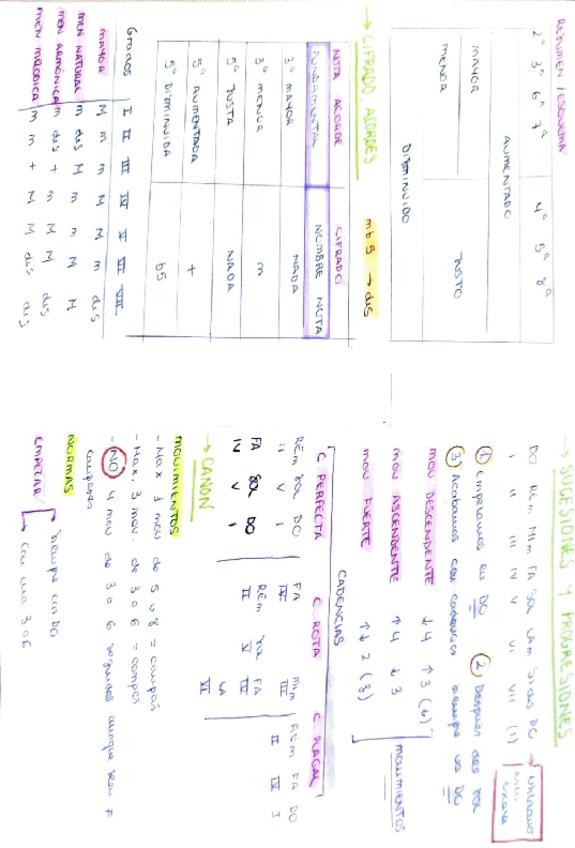 RESUMEN / ESQUEMA
2ª 3ª 6ª 7ª 4ª 5ª 8ª
AUMENTADO
MAYOR
JUSTO
MENOR
DISMINUIDO
→ CIFRADO ACORDES mb5 → dis
NOTA ACORDE CIFRADO
FUNDAMENTAL NOMBRE NOTA
3ª MAYOR NADA
3ª MENOR m
5ª JUSTA NADA
5ª AUMENTADA +
5ª DISMINUIDA b5
Grados I II III IV V VI VII
MAYOR M m m M M m dis
MEN NATURAL m dis M m m M M
MEN ARMÓNICA m dis + m M M dis
MEN MELÓDICA m m + M M dis dis
→ SUCESIONES Y PROGRESIONES
DO REm MIm FA SOL LAm SI dis DO → Utilizamos
I II III IV V VI VII (I) esta escala
① Empezamos en DO ② Después das SOL
③ Acabamos con cadencias siempre va DO
MOV DESCENDENTE ↓4 ↑3 (6)
MOV ASCENDENTE ↑4 ↓3
MOV FUERTE ↑↓ 2 (8)
MOVIMIENTOS
CADENCIAS
C. PERFECTA C. ROTA C. PLAGAL
REm SOL DO FA MIm REm FA DO
II V I IV III II IV I
FA SOL DO REm SOL FA
IV V I II V IV
VI
→ CANON
MOVIMIENTOS
- Max 1 mov de 5 u 8 = compás
- Max. 3 mov. de 3 o 6 = compás
- NO 4 mov de 3 o 6 seguidos aunque sean ≠
compases
NORMAS
EMPEZAR → Siempre en DO
→ Con una 3 o 6